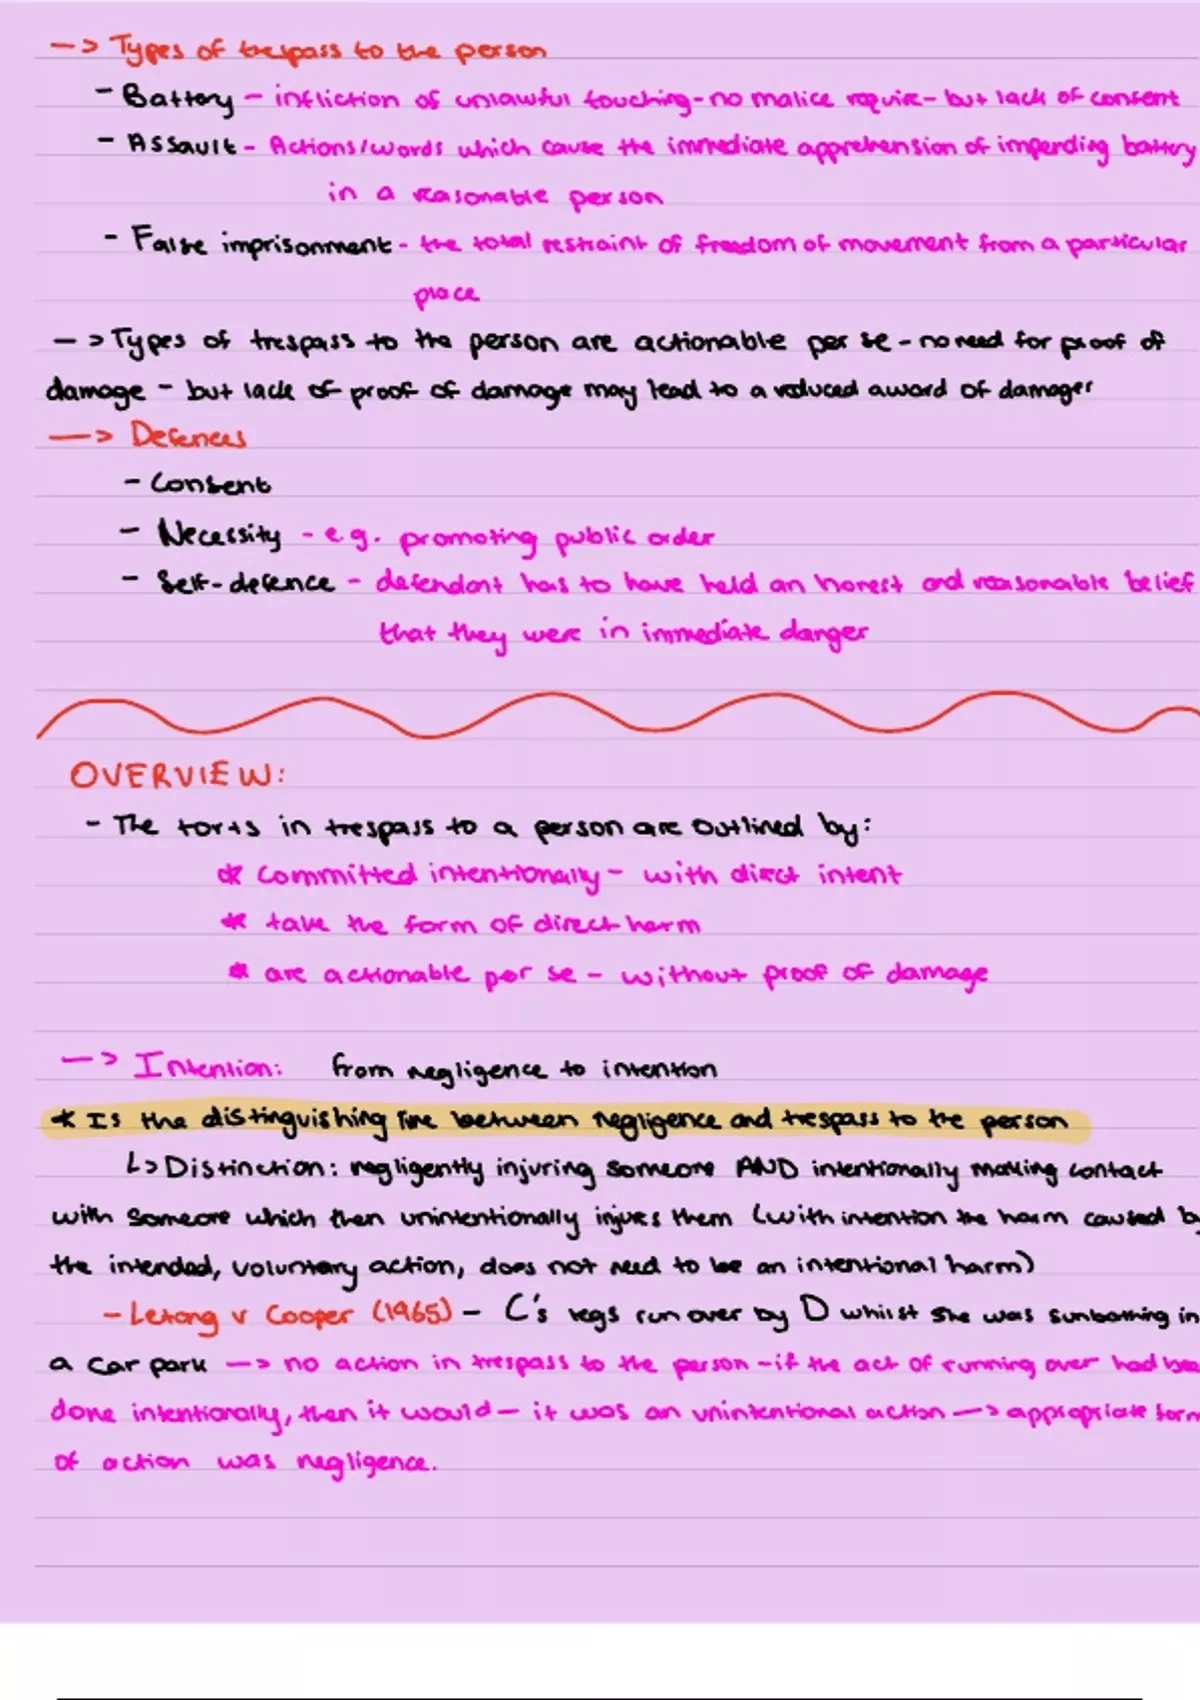 —> Types of trespass to the person
- Battery - infliction of unlawful touching - no malice require - but lack of consent
- Assault - Actions/words which cause the immediate apprehension of impending battery
in a reasonable person
- False imprisonment - the total restraint of freedom of movement from a particular
place
—> Types of trespass to the person are actionable per se - no need for proof of
damage - but lack of proof of damage may lead to a reduced award of damages
—> Defences
- Consent
- Necessity - e.g. promoting public order
- Self-defence - defendant has to have held an honest and reasonable belief
that they were in immediate danger
OVERVIEW:
- The torts in trespass to a person are outlined by:
* committed intentionally - with direct intent
* take the form of direct harm
* are actionable per se - without proof of damage
—> Intention: from negligence to intention
* Is the distinguishing line between negligence and trespass to the person
↳ Distinction: negligently injuring someone AND intentionally making contact
with someone which then unintentionally injures them (with intention the harm caused by
the intended, voluntary action, does not need to be an intentional harm)
- Letang v Cooper (1965) - C's legs run over by D whilst she was sunbathing in
a car park —> no action in trespass to the person - if the act of running over had
done intentionally, then it would - it was an unintentional action —> appropriate form
of action was negligence.